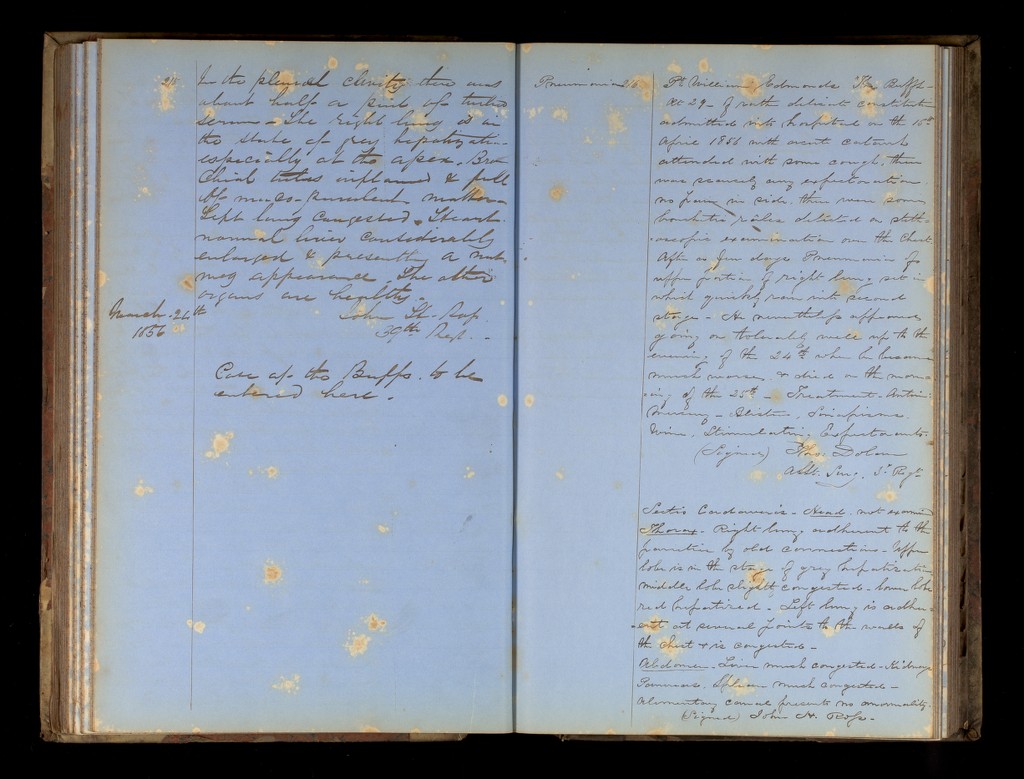 In the pleural cavity there was
about half a pint of turbid
serum. The right lung is in
the state of grey hepatization
especially at the apex. Bron
chial tubes inflamed & full
of muco-purulent matter
Left lung congested. Heart
normal liver considerably
enlarged & presenting a nut
meg appearance. The other
organs are healthy.
March 26th
1856
John H. Ross
39th Regt.
Case of the Buffs to be
entered here.
Pneumonia 26
Pt William Edmonds The Buffs
Æt 29 - of rath delicate constitution
admitted into hospital on the 15th
April 1856 with acute catarrh
attended with some cough, there
was scarcely any expectoration
no pain in side, there were some
bronchitic râles detected on steth
-oscopic examination over the chest
After a few days Pneumonia of
upper portion of right lung set in
which quickly ran into second
stage - He nevertheless appeared
going on tolerably well up to the
evening of the 24th when he became
much worse & died on the morn
-ing of the 25th - Treatment - Antim
Mercury - Blisters, Sinapisms
Wine, Stimulating Expectorants
(Signed) Thos. Dolan
Asst. Surg. 3d Regt
Sectio Cadaveris - Head not examined
Thorax - Right lung adherent to the
parietes by old connections - Upper
lobe is in the stage of grey hepatization
middle lobe slightly congested - lower lobe
red hepatized - Left lung is adher
-ent at several points to the walls of
the chest & is congested -
Abdomen - Liver much congested - Kidneys
Pancreas, Spleen much congested -
Alimentary canal presents no abnormality
(Signed) John H. Ross -